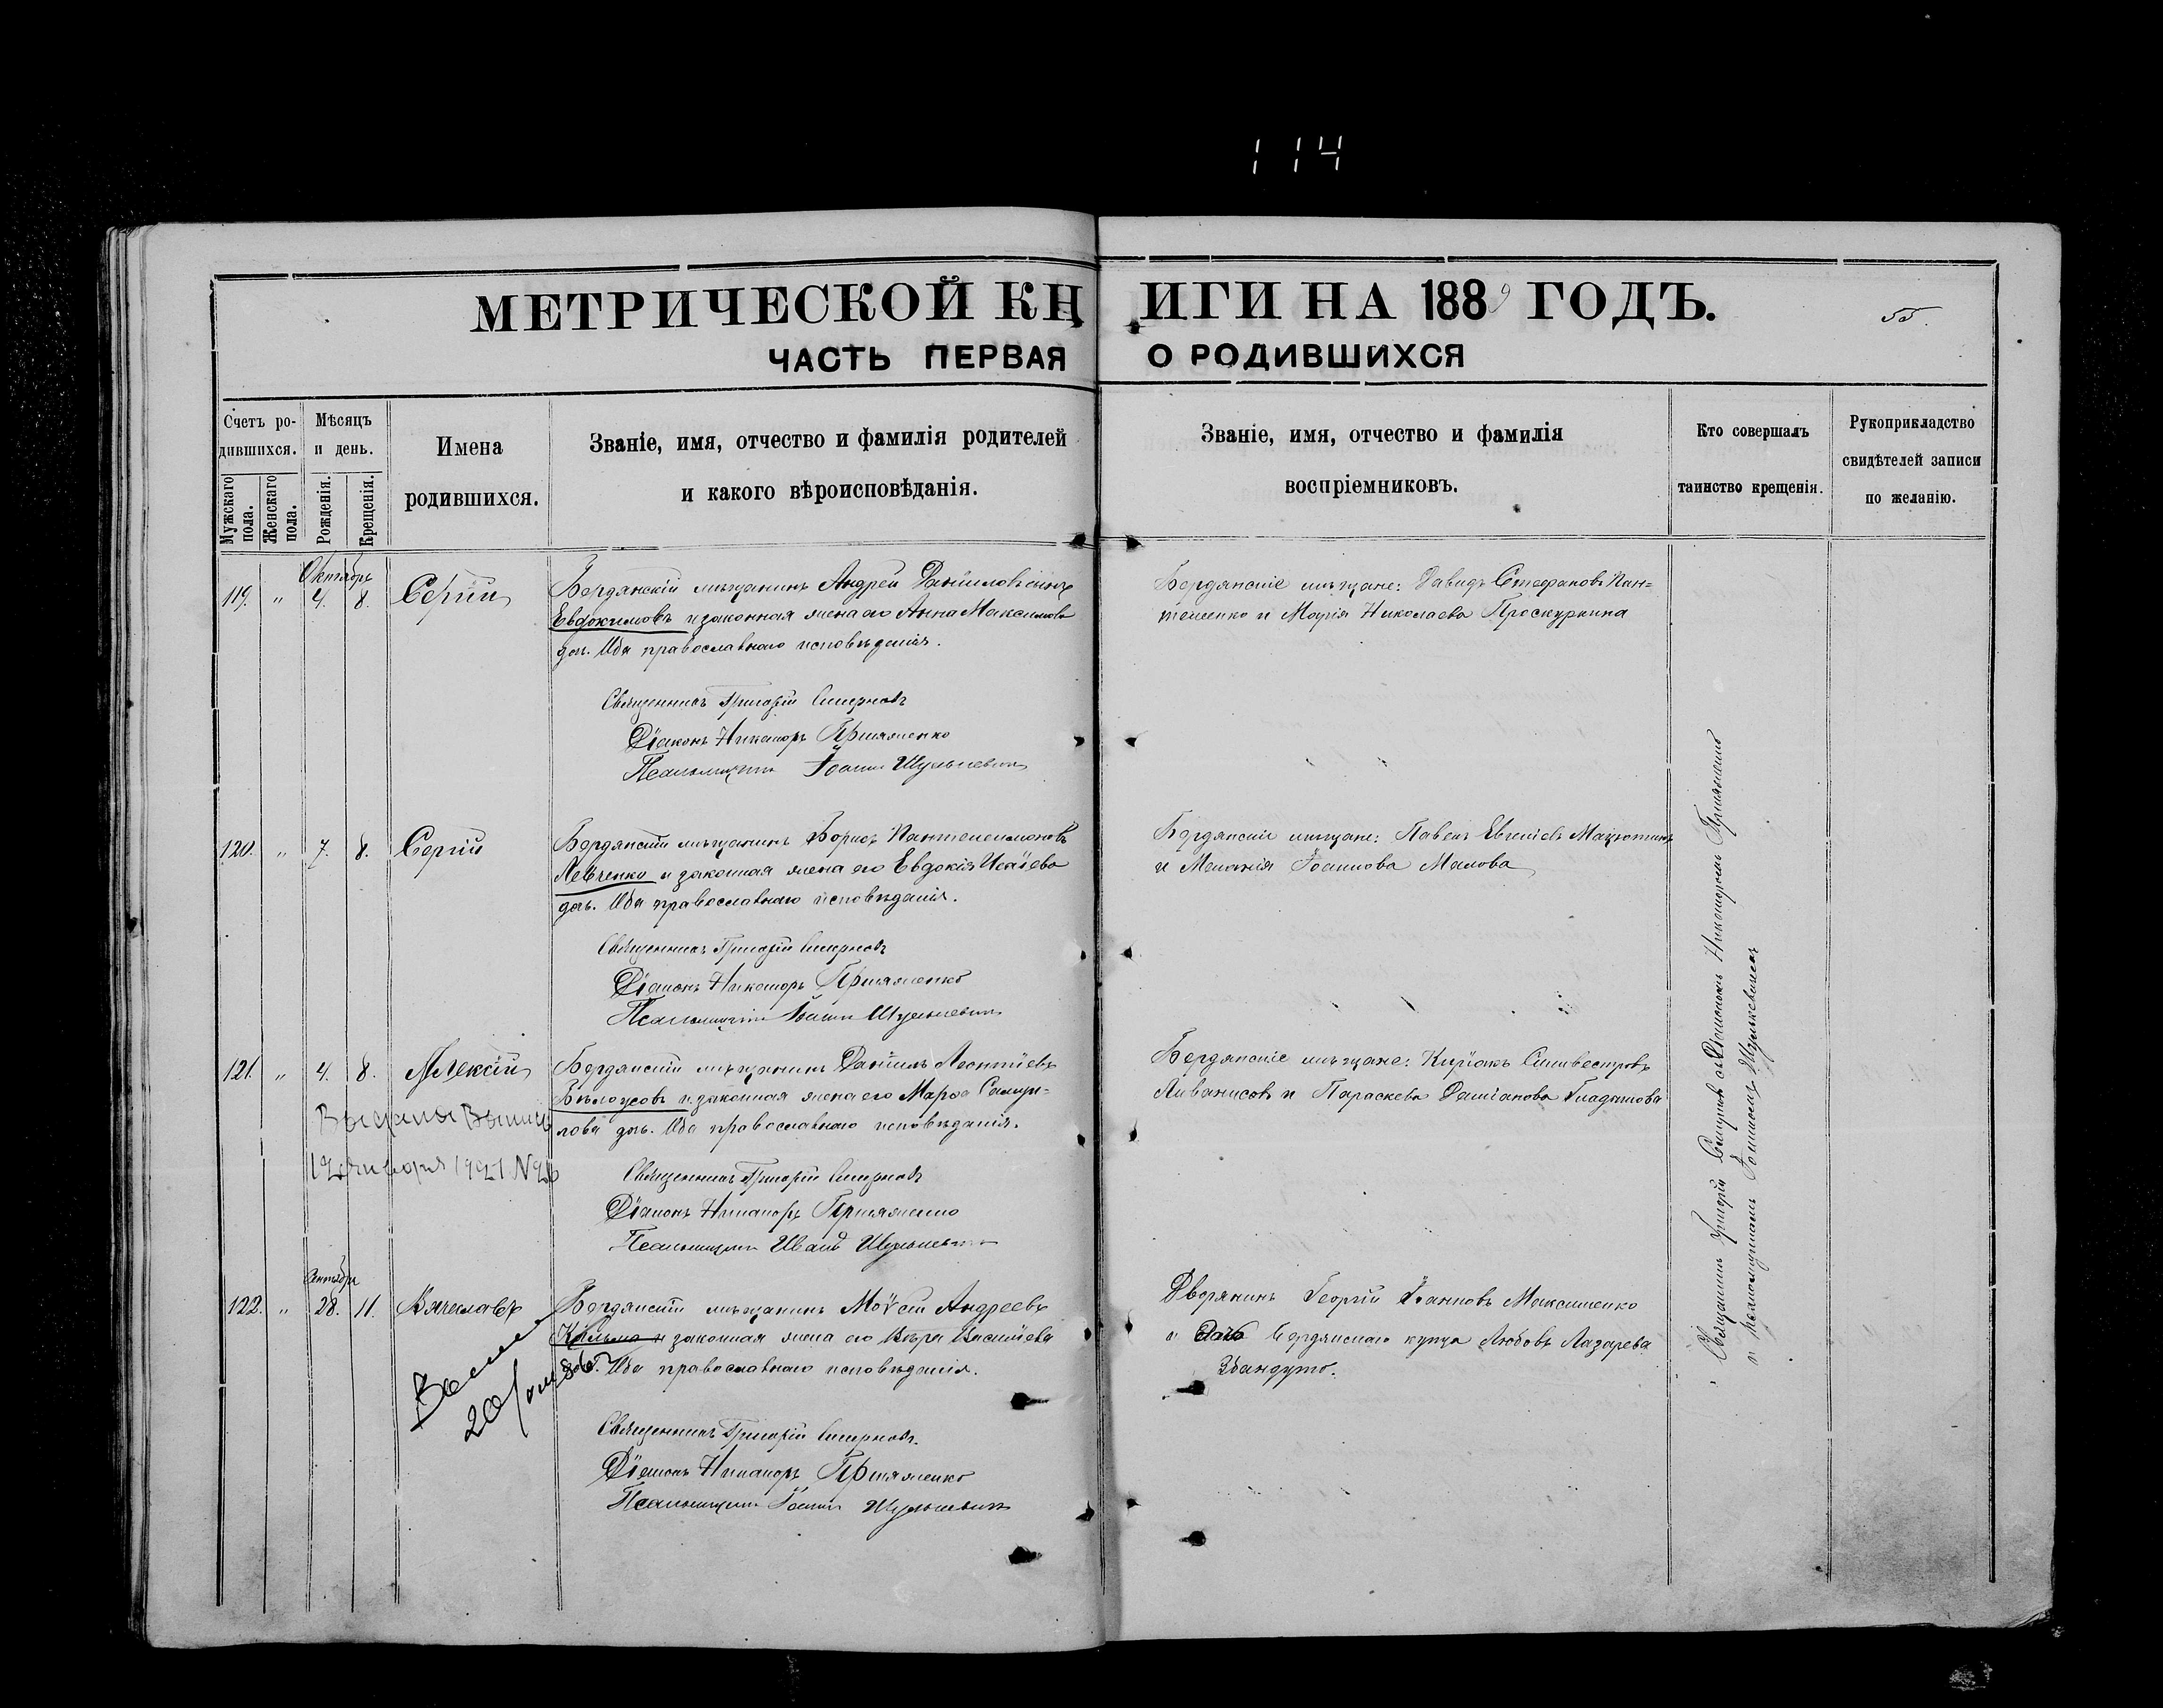 114
МЕТРИЧЕСКОЙ КНИГИ НА 1889 ГОДЪ.
55.
ЧАСТЬ ПЕРВАЯ О РОДИВШИХСЯ
Счетъ ро-
дившихся.
Мужскаго пола.
Женскаго пола.
Мѣсяцъ
и день.
Рожденія.
Крещенія.
Имена
родившихся.
Званіе, имя, отчество и фамилія родителей
и какого вѣроисповѣданія.
Званіе, имя, отчество и фамилія
воспріемниковъ.
Кто совершалъ
таинство крещенія.
Рукоприкладство
свидѣтелей записи
по желанію.
Октябрь
119. " 4. 8. Сергій
Бердянскій мѣщанинъ Андрей Даниловъ
Евдокимовъ и законная жена его Анна Максимова
дочь. Оба православнаго исповѣданія.
Священникъ Григорій Смирновъ
Діаконъ Никаноръ
Псаломщикъ Іоаннъ Шулькевичъ
Бердянскіе мѣщане: Давидъ Стефановъ Пан-
теленко и Марія Николаева Проскурнина
120. " 7. 8. Сергій
Бердянскій мѣщанинъ Борисъ Пантелеимоновъ
Левченко и законная жена его Евдокія Исаіева
дочь. Оба православнаго исповѣданія.
Священникъ Григорій Смирновъ
Діаконъ Никаноръ
Псаломщикъ Іоаннъ Шулькевичъ
Бердянскіе мѣщане: Павелъ Евгеніевъ
и Меланія Іоаннова Малова
121. " 4. 8. Алексій
Бердянскій мѣщанинъ Даніилъ Леонтіевъ
Бѣлоусовъ и законная жена его Марфа Самуи-
лова дочь. Оба православнаго исповѣданія.
Выдана
12 января 1921 N26
Священникъ Григорій Смирновъ
Діаконъ Никаноръ
Псаломщикъ Иванъ Шулькевичъ
Бердянскіе мѣщане: Киріакъ Силивестровъ
Аиванисовъ и Параскева Даміанова Гладышова
Сентябрь
122. " 28. 11. Вячеславъ
Бердянскій мѣщанинъ Моѵсей Андреевъ
и законная жена его Вѣра Василіева
Оба православнаго исповѣданія.
Священникъ Григорій Смирновъ.
Діаконъ Никаноръ
Псаломщикъ Іоаннъ Шулькевичъ
Дворянинъ Георгій Іоанновъ Максименко
и дочь бердянскаго купца Любовь Лазарева
Священникъ Григорій Смирновъ съ діакономъ Никаноромъ
и псаломщикомъ Іоанномъ Шулькевичемъ